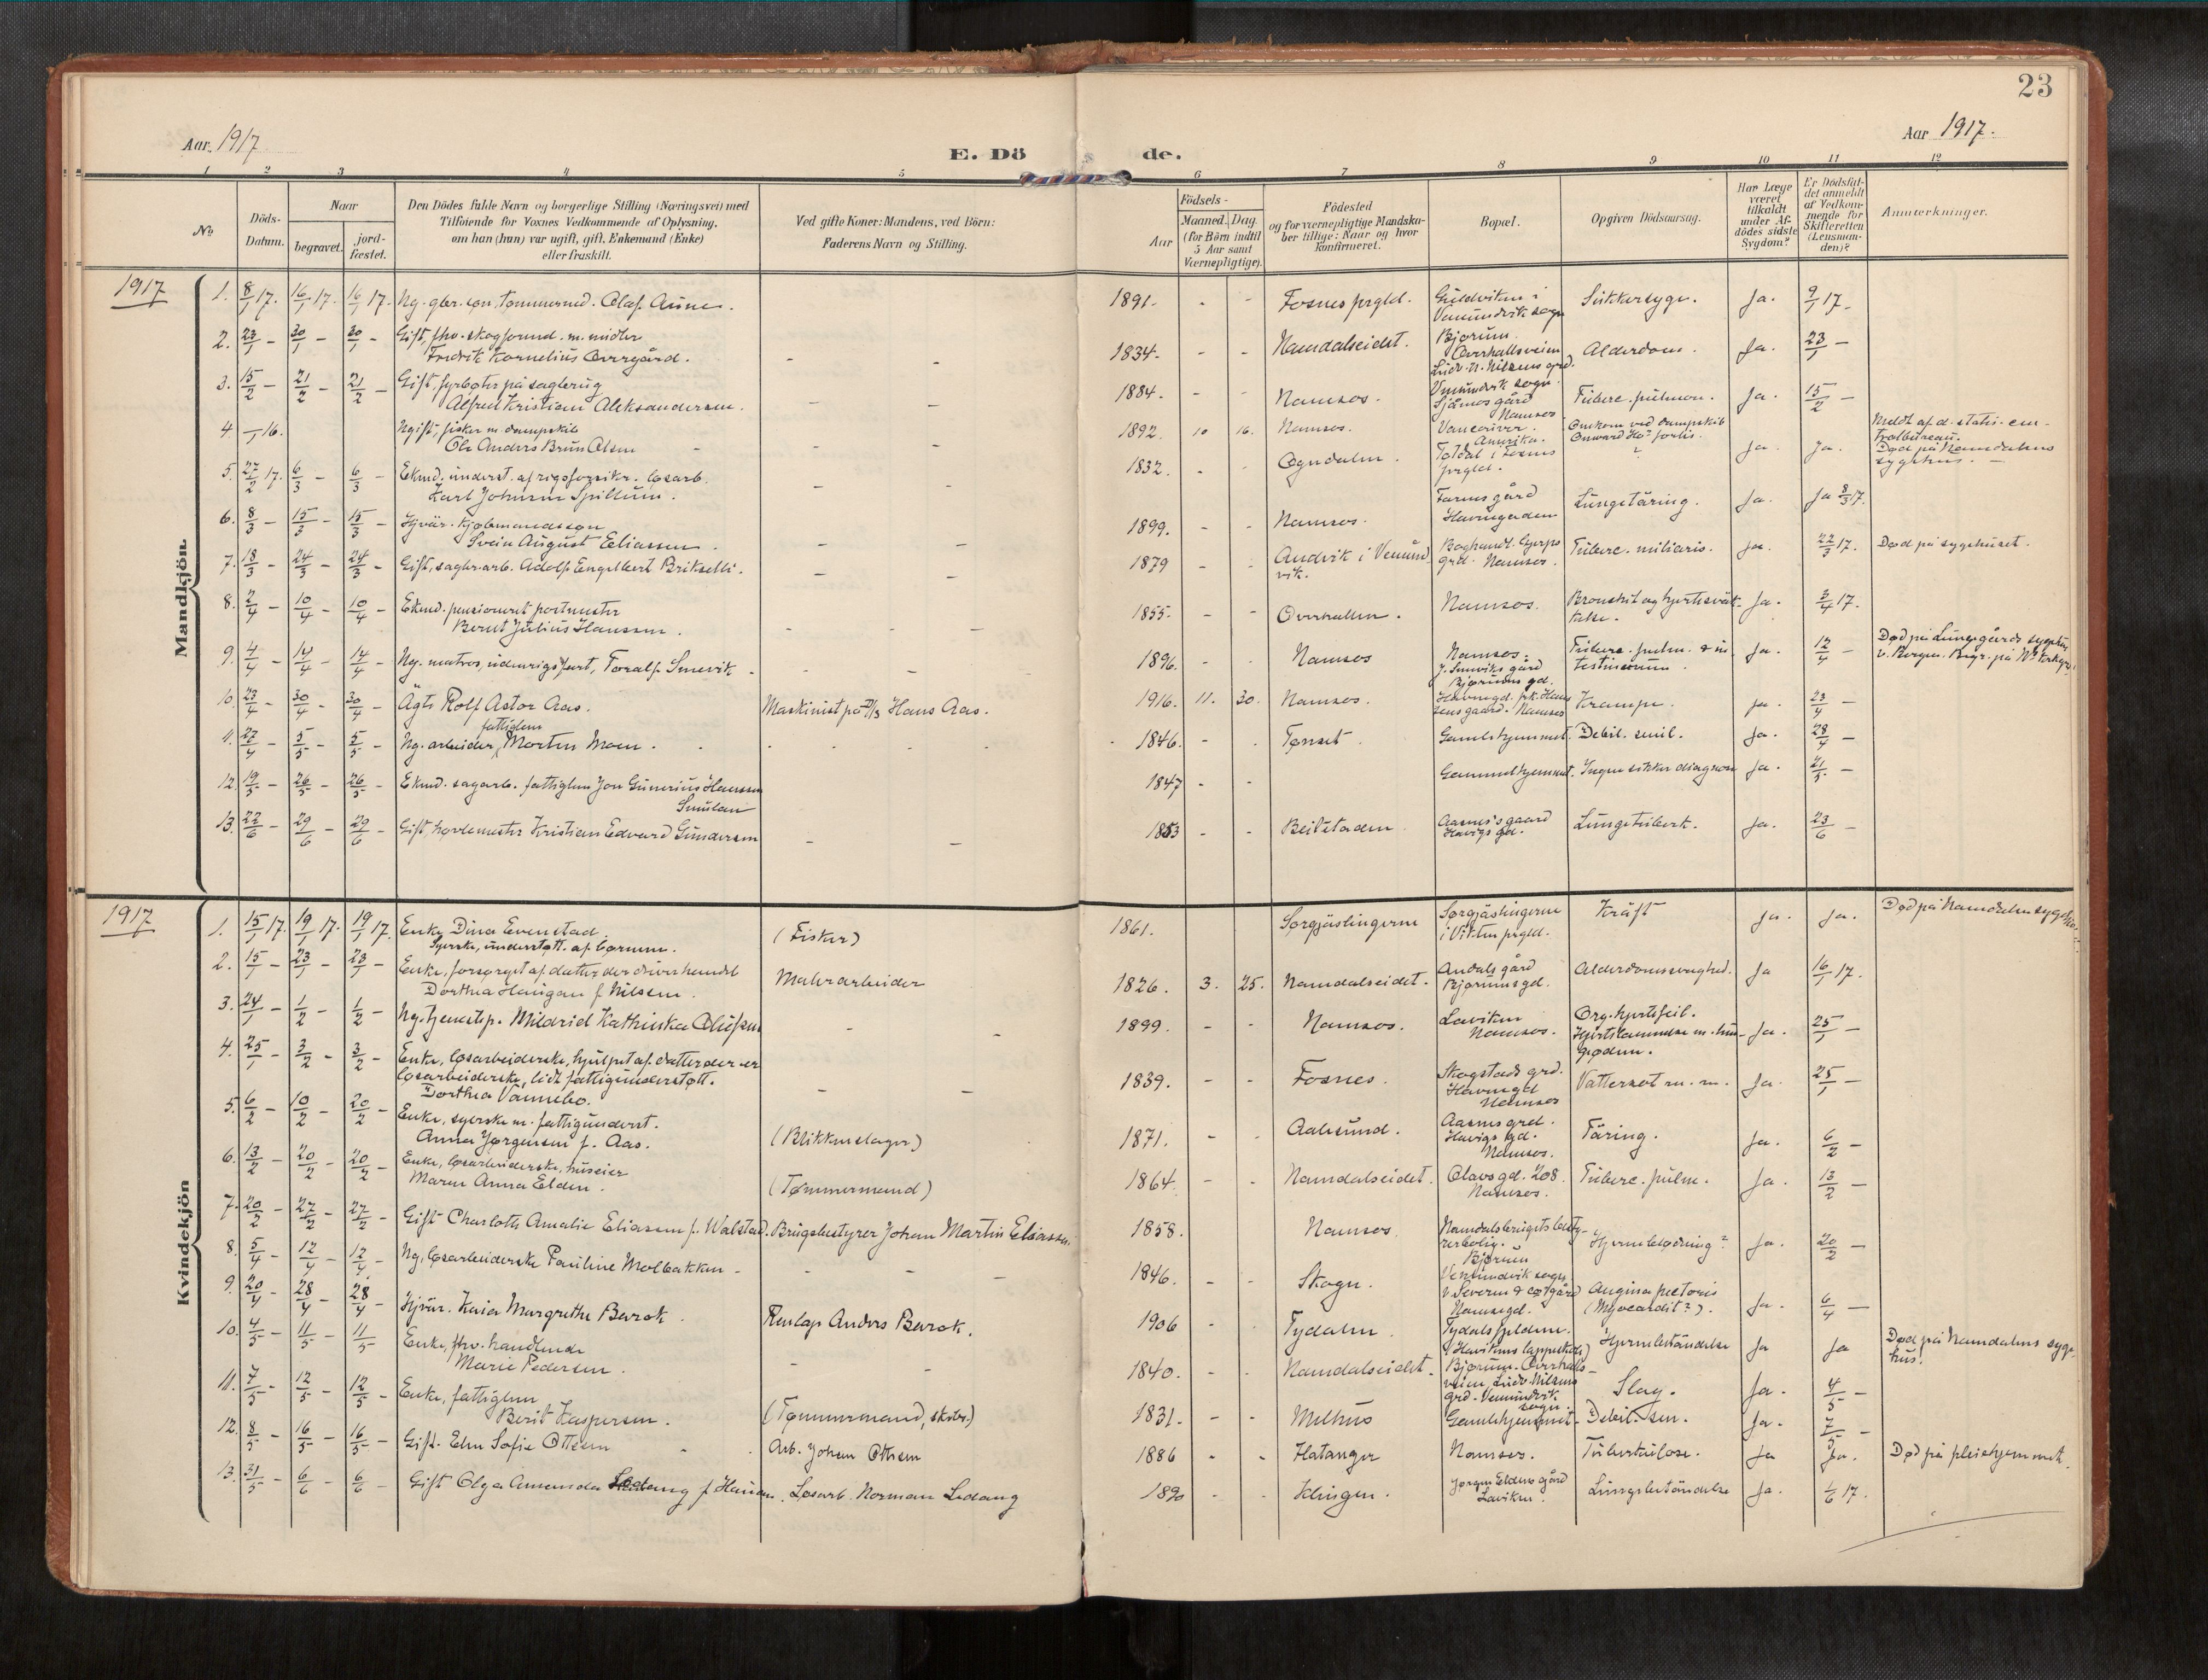 23
Aar. 1917
Aar 1917.
E. Dö de.
1 2 3 4 5 6 7 8 9 10 11 12
No
Döds-Datum.
Naar
begravet.
jord-fæstet.
Den Dödes fulde Navn og borgerlige Stilling (Næringsvei) med
Tilföiende for Voxnes Vedkommende af Oplysning,
om han (hun) var ugift, gift, Enkemand (Enke)
eller fraskilt.
Ved gifte Koner: Mandens, ved Börn:
Faderens Navn og Stilling.
Aar
Födsels-
Maaned. Dag.
(for Börn indtil
5 Aar samt
Værnepligtige).
Födested
og for værnepligtige Mandska-
ber tillige: Naar og hvor
konfirmeret.
Bopæl.
Opgiven Dödsaarsag.
Har Læge
været
tilkaldt
under Af-
dödes sidste
Sygdom?
Er Dödsfal-
det anmeldt
af Vedkom-
mende for
Skifteretten
(Lensman-
den)?
Anmærkninger.
Mandkjön.
1917
1. 8/1 17. 16/1 17. 16/1 17. Ng. gbr. søn, tømmermd. Olaf Aune. 1891. - - Fosnes prgld. Guldvikens i Vemundvik sogn Sukkersyge. Ja. 9/1 17.
2. 23/1 - 30/1 - 30/1 - Gift, fhv. skogformd. m. midler
Fredrik Kornelius Overgård. - - 1834. - - Namdalseidet. Bjørum Overhallsveien Ludv. N. Nilsens grd. Alderdom. Ja. 23/1 -
3. 15/2 - 21/2 - 21/2 - Gift, fyrbøter på sagbrug
Alfred Kristian Aleksandersen. - - 1884. - - Namsos. Vemundvik sogn. Sjåenes gård Namsos Tuberc. pulmon. Ja. 15/2 -
4. -/1 16. Ugift, fisker m. dampskib
Ole Anders Brun Olsen - 1892. 10 16. Namsos. Vancouver. Amerika. Omkom ved dampskib Onward Ho's forlis. Meldt af d. statis. cen-
tralbureau.
5. 27/2 17. 6/3 - 6/3 - Ekmd. underst. af rigsforsikr. løsarb.
Karl Johnsen Spillum. - - 1832. - - Ogndalen. i Fosnes prgld. ? Ja. Ja. Død på Namdalens sygehus. -
6. 8/3 - 15/3 - 15/3 - Hjvær. kjøbmandssøn
Svein August Eliassen. - - 1899. - - Namsos. Farms gård Havnegaden Lungetæring. Ja. Ja 8/3 17.
7. 18/3 - 24/3 - 24/3 - Gift, sagbr. arb. Adolf Engelbert Brikselli. - - 1879 - - Andvik i Vemund-
vik. Boghandl. grd. Namsos. Tuberc. miliaris. Ja. 22/3 17. Død på sygehuset.
8. 2/4 - 10/4 - 10/4 - Ekmd. pensioneret postmester
Bernt Julius Hanssen. - - - 1855. - - Overhallen. Namsos. Bronchit og hjertesvæk-
kelse. Ja. 3/4 17.
9. 4/4 - 14/4 - 14/4 - Ng. matros, udenrigsfart, Toralf Smevik. - - 1896. - - Namsos Namsos. J. Smeviks gård Bjørums gd. Tuberc. pulm. & in-
testinorum. Ja. 12/4 - Død på Lungegårds sygehus
v. Bergen. Begr. på Ns. kirkegr.
10. 23/4 - 30/4 - 30/4 - Ægte Rolf Astor Aas. Maskinist på D/S Hans Aas. 1916. 11. 30. Namsos. Havnegd. Hans-
sens gaard. Namsos Krampe. Ja. 23/4 -
11. 27/4 - 5/5 - 5/5 - Ng. arbeider, fattiglem Morten Moen. - - - 1846. - - Tønset. Gamlehjemmet. Debil. senil. Ja. 28/4 -
12. 19/5 - 26/5 - 26/5 - Ekmd. sagarb. fattiglem Jon Gunerius Hansen
Smulan 1847 - - Gammelhjemmet. Ingen sikker diagnose Ja. 21/5 -
13. 22/6 - 29/6 - 29/6 - Gift, Kristian Edvard Gundersen - - 1853 - - Beitstaden Aasnes's gaard Havigs gd. Lungetuberk. Ja. 23/6 -
Kvindekjön
1917
1. 15/1 17. 19/1 17. 19/1 17. Enke Dina Evenstad.
Syerske, understøtt. af børnene. (Fisker) 1861. Sørgjæslingerne Sørgjæslingerne i Vikten prgld. Kræft Ja. Ja. Død på Namdalens sygehus.
2. 15/1 - 23/1 - 23/1 - Enke, forsørget af datter der driver handel
Dorthea Haugan f. Nilsen. Malerarbeider 1826. 3. 25. Namdalseidet. Andals gård Bjørumsgd. Alderdomssvaghed. Ja 16/1 17.
3. 24/1 - 1/2 - 1/2 - Ng. tjenestep. Mildrid Kathinka Olufsen - - 1899. - - Namsos. Laviken Namsos. Org. hjertefeil. Hjertelammelse Ja. 25/1 -
4. 25/1 - 3/2 - 3/2 - Enke, løsarbeiderske, hjulpet af datter der er
løsarbeiderske, lidt fattigunderstøtt.
Dorthea Vannebo. - - 1839. - - Fosnes. Skogstads grd. Havnegd Namsos Vattersot m. m. Ja. 25/1 -
5. 6/2 - 10/2 - 20/2 - Enke, syerske m. fattigunderst.
Anna Jørgensen f. Aas. (Blikkenslager) 1871. - - Aalesund. Aasnes grd. Havigs gd. Namsos. Tæring. Ja. 6/2 -
6. 13/2 - 20/2 - 20/2 - Enke, løsarbeiderske, huseier
Maren Anna Elden. (Tømmermand) 1864. - - Namdalseidet. Olavs gd. 208. Namsos. Tuberc. pulm. Ja. 13/2 -
7. 20/2 - 27/2 - 27/2 - Gift Charlotte Amalie Eliassen f. Walstad. Brugsbestyrer Johan Martin Eliassen. 1858. Namsos Namdalsbrugets besty-
rerbolig. Bjørum Hjerneblødning? Ja. 20/2 -
8. 5/4 - 12/4 - 12/4 - Ng. løsarbeiderske Pauline Molbakken - - - - 1846. - - Skogn. Vemundvik sogn. Namsegd. Angina pectoris (Myocardit?). Ja. 6/4 -
9. 20/4 - 28/4 - 28/4 - Hjvær. Kaia Margrethe Barok. Renlap Anders Barok. 1906 - - Tydalen. Tydalsfjeldene. Hjernebetændelse Ja Ja Død på Namdalens syge-
hus.
10. 4/5 - 11/5 - 11/5 Enke, fhv. handlende
Marie Pedersen. - - 1840. - - Namdalseidet. Bjørum. Overhalls-
veien Ludv. Nilsens grd. Vemundvik sogn. Slag. Ja. 4/5 -
11. 7/5 - 12/5 - 12/5 - Enke, fattiglem
Berit Kaspersen. (Tømmermand, skobr.) 1831. - - Melhus Gamlehjemmet. Debil. sen. Ja. 7/5 -
12. 8/5 - 16/5 - 16/5 - Gift. Elen Sofie Ottesen - Arb. Johan Ottesen 1886 - - Flatanger Namsos. Tuberkulose. Ja Ja. Død på pleiehjemmet.
13. 31/5 - 6/6 - 6/6 - Gift Olga Amanda Ledang f. Hansen. Løsarb. Norman Ledang 1890 - - Klingen. Jørgen Eldens gård Laviken. Lungebetændelse Ja. 1/6 17.